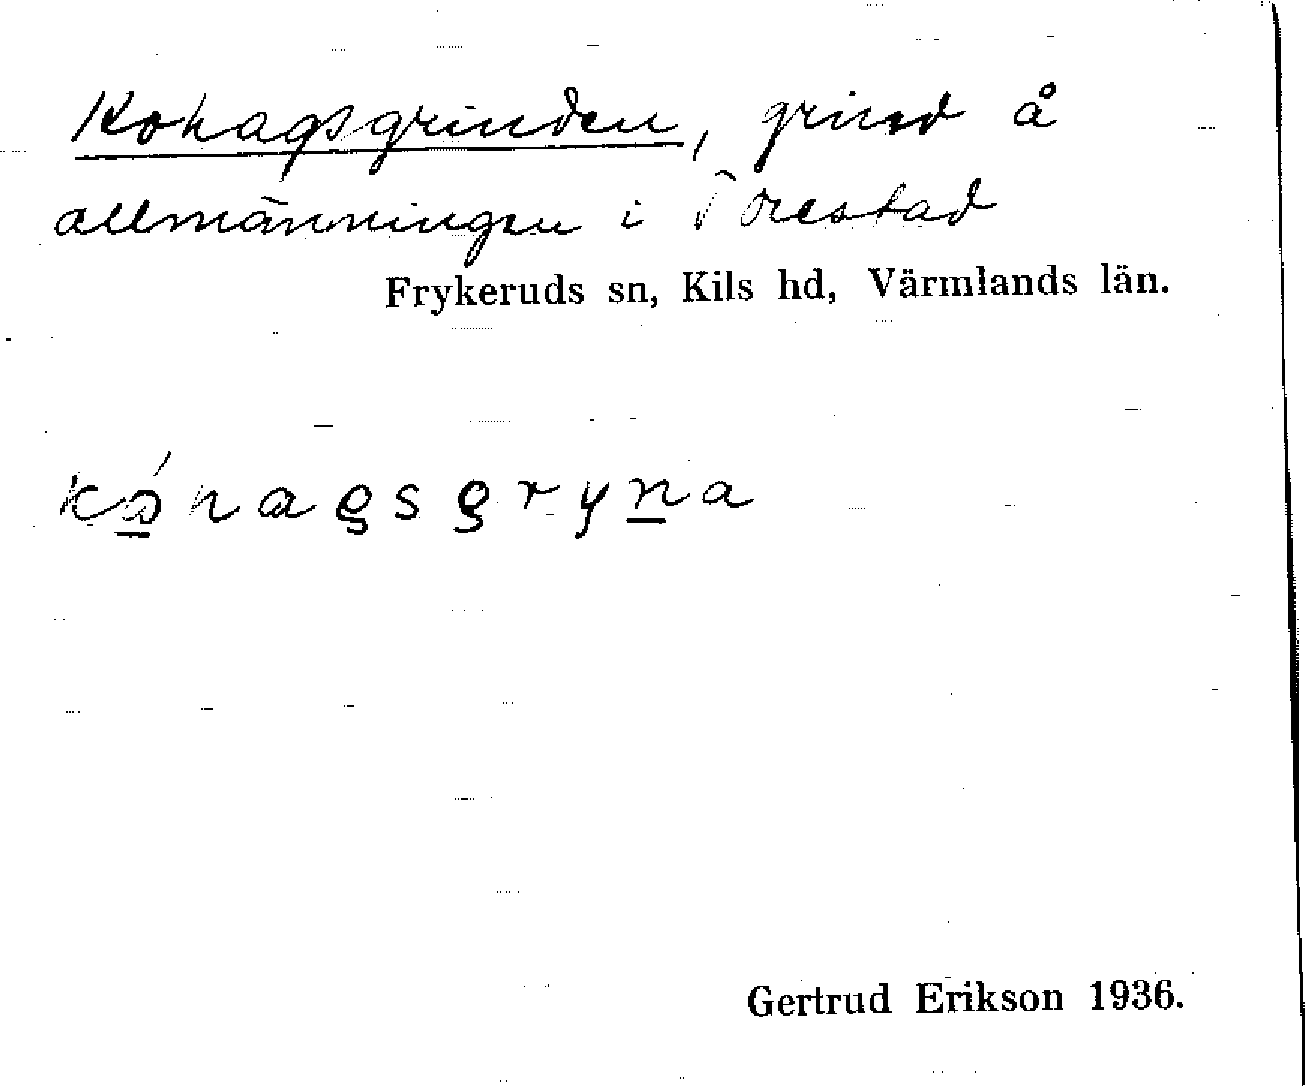 Kohagsgrinden, grind å
allmänningen i Torestad
Frykeruds sn, Kils hd, Värmlands län.
Gertrud Erikson 1936.